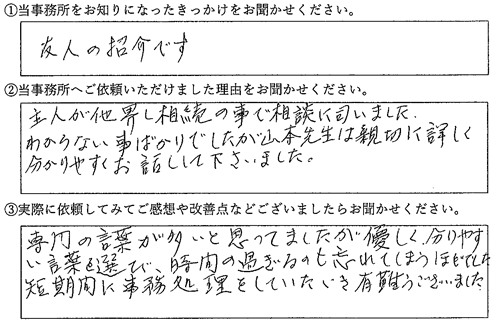 ①当事務所をお知りになったきっかけをお聞かせください。
友人の紹介です
②当事務所へご依頼いただけました理由をお聞かせください。
主人が他界し相続の事で相談に伺いました.
わからない事ばかりでしたが山本先生は親切に詳しく
分かりやすくお話しして下さいました。
③実際に依頼してみてご感想や改善点などございましたらお聞かせください。
専門の言葉が多いと思ってましたが優しく、分りやす
い言葉を選び、時間の過ぎるのも忘れてしまうほどでした
短期間に事務処理をしていただき有難うございました